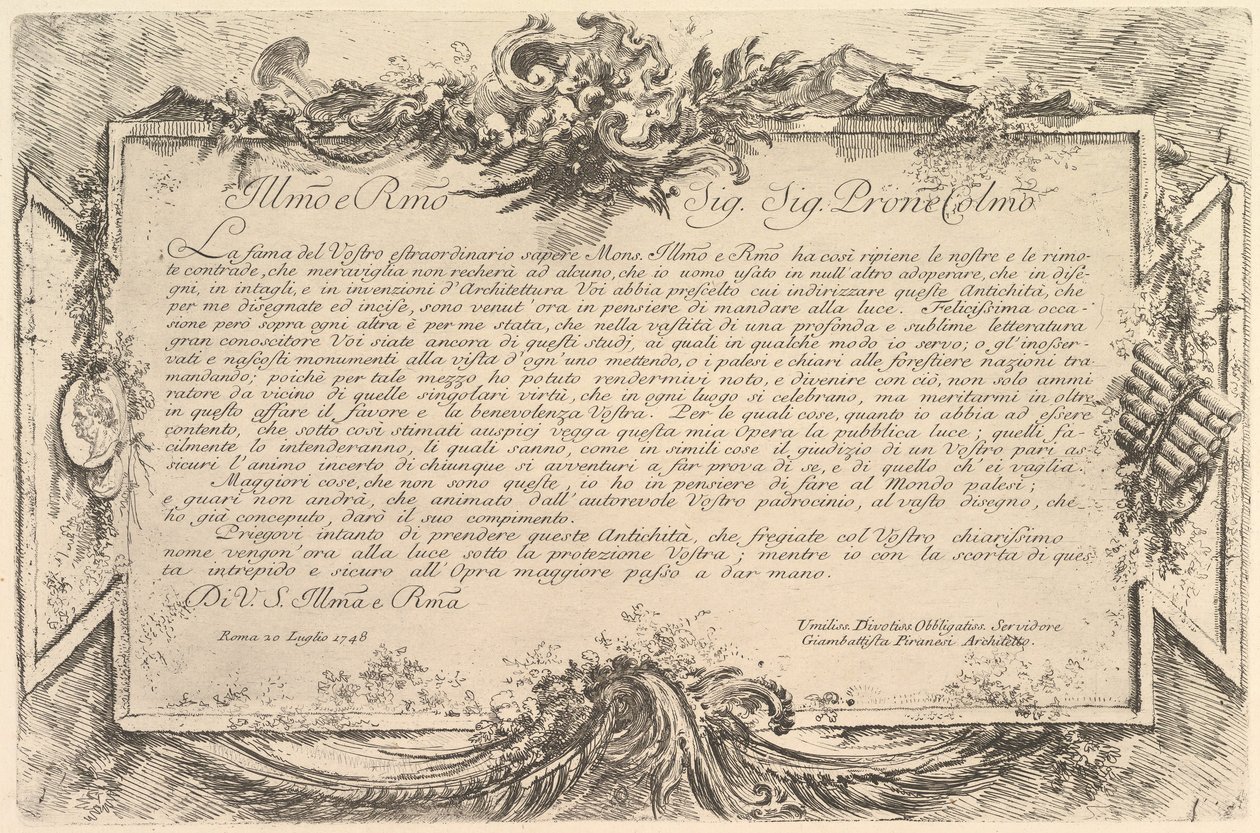 Illm̃o e Rm̃o Sig. Sig. Prone Colmo
La fama del Vostro eſtraordinario sapere Mons. Illm̃o e Rm̃o ha così ripiene le noſtre e le rimo-
te contrade, che meraviglia non recherà ad alcuno, che io uomo uſato in null'altro adoperare, che in diſe-
gni, in intagli, e in invenzioni d'Architettura Voi abbia preſcelto cui indirizzare queſte Antichità, che
per me diſegnate ed inciſe, sono venut'ora in pensiere di mandare alla luce. Feliciſsima occa-
sione però sopra ogni altra è per me stata, che nella vaſtità di una profonda e sublime letteratura
gran conoscitore Voi siate ancora di queſti studj, ai quali in qualche modo io servo; o gl'inoſser-
vati e naſcoſti monumenti alla viſta d'ogn'uno mettendo, o i palesi e chiari alle foreſtiere nazioni tra-
mandando; poichè per tale mezzo ho potuto rendermivi noto, e divenire con ciò, non solo ammi
ratore da vicino di quelle singolari virtù, che in ogni luogo si celebrano, ma meritarmi in oltre
in queſto affare il favore e la benevolenza Voſtra. Per le quali cose, quanto io abbia ad eſsere
contento, che sotto così stimati auspicj vegga queſta mia Opera la pubblica luce; quelli fa-
cilmente lo intenderanno, li quali sanno, come in simili cose il giudizio di un Voſtro pari as
sicuri l'animo incerto di chiunque si avventuri a far prova di se, e di quello ch'ei vaglia.
Maggiori cose, che non sono queſte, io ho in pensiere di fare al Mondo palesi;
e guari non andrà, che animato dall'autorevole Voſtro padrocinio, al vaſto disegno, che
ho già conceputo, darò il suo compimento.
Priegovi intanto di prendere queste Antichità, che fregiate col Voſtro chiariſsimo
nome vengon'ora alla luce sotto la protezione Voſtra; mentre io con la scorta di ques
ta intrepido e sicuro all'Opra maggiore paſso a dar mano.
Di V. S. Illm̃a e Rm̃a
Roma 20 Luglio 1748
Umiliss. Divotiss. Obbligatiss. Servidore
Giambattiſta Piranesi Architetto.